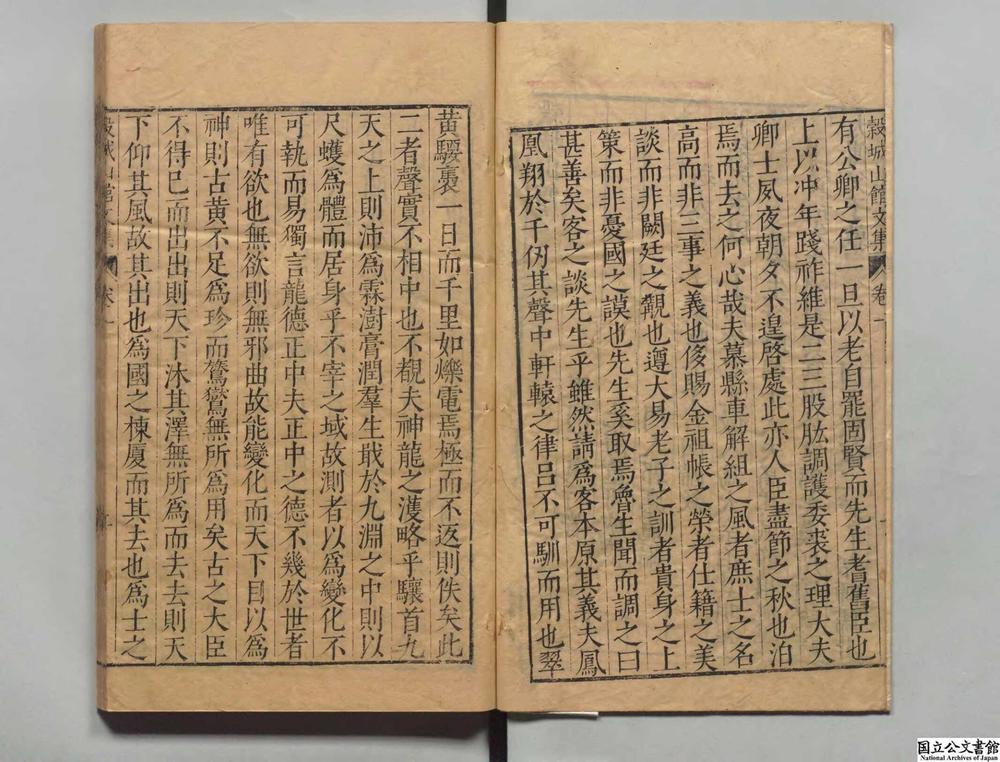 穀城山館文集 卷一
有公卿之任一旦以老自罷固賢而先生耆舊臣也
上以冲年踐祚維是二三股肱調護委裘之理大夫
卿士夙夜朝夕不遑啓處此亦人臣盡節之秋也洎
焉而去之何心哉夫慕縣車解組之風者庶士之名
高而非三事之義也侈賜金祖帳之榮者仕籍之美
談而非闕廷之觀也遵大易老子之訓者貴身之上
策而非憂國之謨也先生奚取焉魯生聞而謂之曰
甚善矣客之談先生乎雖然請爲客本原其義夫鳳
凰翔於千仞其聲中軒轅之律呂不可馴而用也翠
黄騕褭一日而千里如爍電焉極而不返則佚矣此
二者聲實不相中也不覩夫神龍之濩略乎驤首九
天之上則沛爲霖澍膏潤羣生戢於九淵之中則以
尺蠖爲體而居身乎不宰之域故測者以爲變化不
可執而易獨言龍德正中夫正中之德不幾於世者
唯有欲也無欲則無邪曲故能變化而天下目以爲
神則古黄不足爲珍而鸑鷟無所爲用矣古之大臣
不得已而出出則天下沐其澤無所爲而去去則天
下仰其風故其出也爲國之棟厦而其去也爲士之
穀城山館文集 卷一
国立公文書館
National Archives of Japan